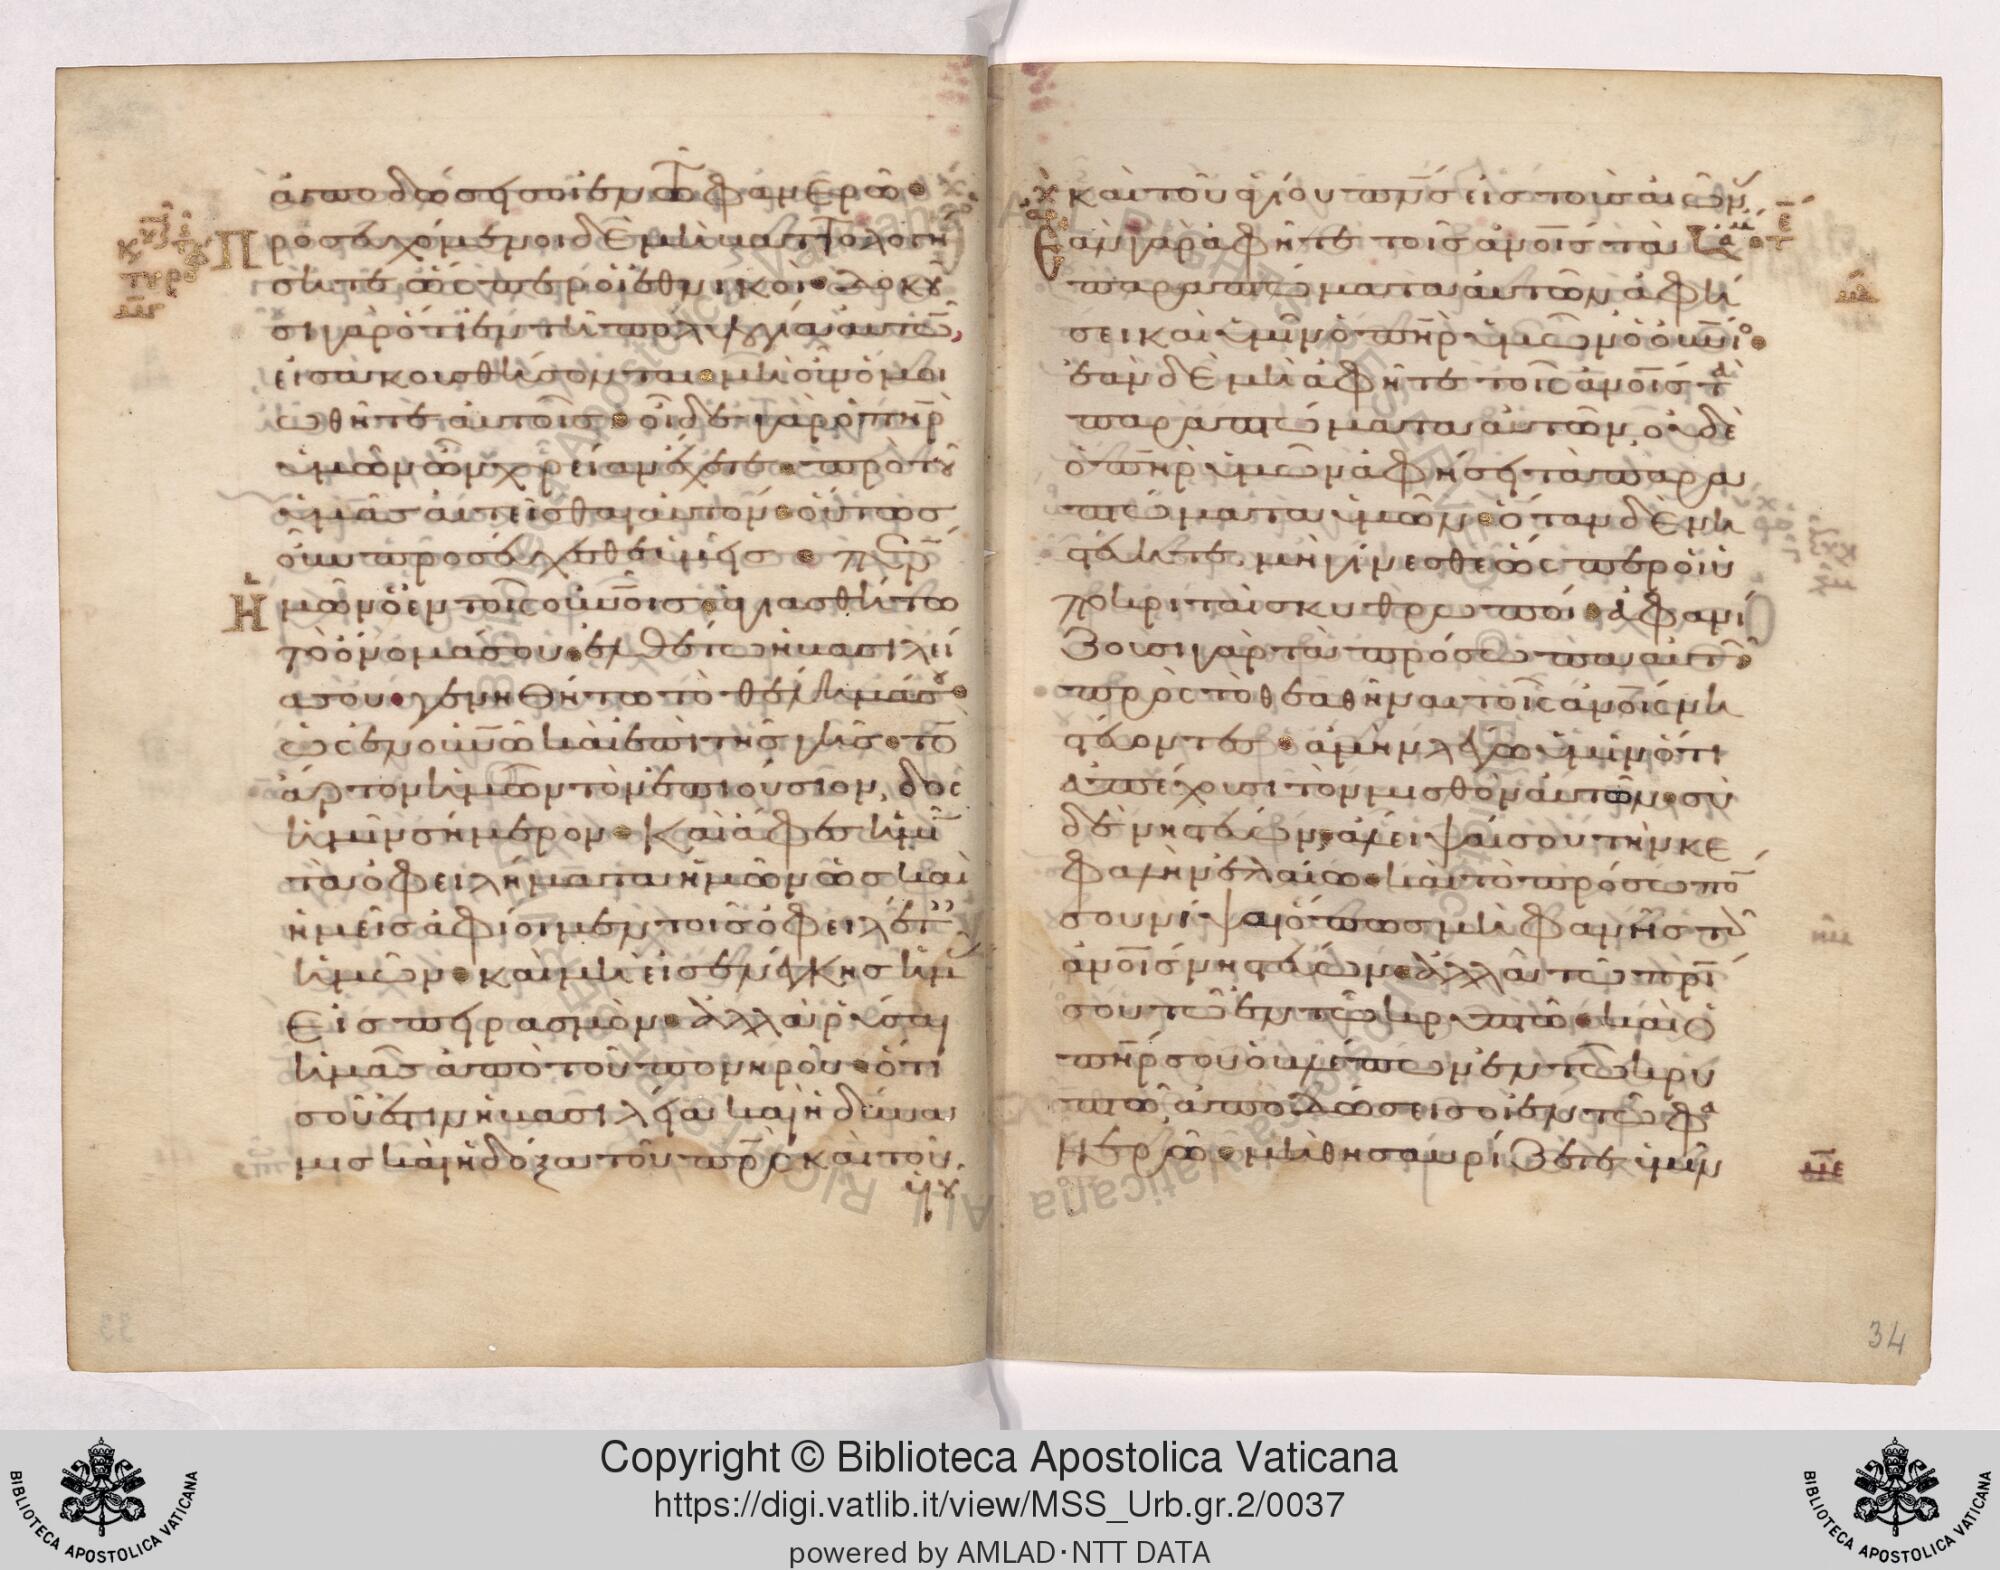 ἀποδώσῃ σοι ἐν τῶ φανερῶ·
Προσευχόμενοι δὲ μὴ βαττολογή
σητε ὡς περ οἱ ἐθνικοί· δοκοῦ
σι γὰρ ὅτι ἐν τῆ πολυλογία αὐτῶ,
εἰσακουσθήσονται· μὴ οὖν ὁμοι
ωθῆτε αὐτοῖς· οἶδε γὰρ ὁ πηρ
ὑμῶν ὧν χρείαν ἔχετε· πρὸ τοῦ
ὑμᾶς αἰτεῖσθαι αὐτόν· οὕτως
οὖν προσεύχεσθε ὑμεῖς· περ
ἡμῶν ὁ ἐν τοῖς οὐνοις· ἁγιασθήτω
τὸ ὄνομά σου· ἐλθέτω ἡ βασιλεί
α σου· γενηθήτω τὸ θέλημά σου·
ὡς ἐν οὐνῶ καὶ ἐπὶ τῆς γῆς· τὸ
ἄρτον ἡμῶν τὸν ἐπιούσιον, δὸς
ἡμῖν σήμερον· καὶ ἄφες ἡμῖ
τὰ ὀφειλήματα ἡμῶν ὡς καὶ
ἡμεῖς ἀφίομεν τοῖς ὀφειλέτ
ἡμῶν· καὶ μὴ εἰσενέγκης ἡμ
εἰς πηρασμόν· ἀλλὰ ῥῦσαι
ἡμᾶς ἀπὸ τοῦ πονηροῦ· ὅτι
σοῦ ἐστιν ἡ βασιλεία καὶ ἡ δύνα
μις καὶ ἡ δόξα τοῦ πρς καὶ τοῦ
υἱοῦ
καὶ τοῦ ἁγίου πνς εἰς τοὺς αἰῶν
Ἐὰν γὰρ ἀφῆτε τοῖς ἀνοις τὰ
παραπτώματα αὐτῶν ἀφή
σει καὶ ὑμῖν ὁ πηρ ὑμῶν ὁ οὐνιος·
ἐὰν δὲ μὴ ἀφῆτε τοῖς ἀνοις τὰ
παραπτώματα αὐτῶν, οὐδὲ
ὁ πηρ ὑμῶν ἀφήσῃ τὰ παρα
πτώματα ὑμῶν· ὅταν δὲ νη
στεύητε, μὴ γίνεσθε ὡς περ οἱ ὑ
ποκριταὶ σκυθρωποί· ἀφανί
ζουσι γὰρ τὰ πρόσωπα αὐτῶ·
πρὸς τὸ θεαθῆναι τοῖς ἀνοις νη
στεύοντες· ἀμὴν λέγω ὑμῖν ὅτι
ἀπέχουσι τὸν μισθὸν αὐτῶν· σὺ
δὲ νηστεύων, ἄλειψαί σου τὴν κε
φαλὴν ἐλαίω· καὶ τὸ πρόσωπό
σου νίψαι ὅπως μὴ φανῆς το
ἀνοις νηστεύων· ἀλλὰ τῶ πρι
σου τῶ ἐν τῶ κρυπτῶ· καὶ ὁ
πηρ σου ὁ βλέπων ἐν τῶ κρυ
πτῶ ἀποδώσει σοι ἐν τῶ φα
νερῶ· μὴ θησαυρίζετε ὑμῖν
34
Copyright © Biblioteca Apostolica Vaticana
https://digi.vatlib.it/view/MSS_Urb.gr.2/0037
powered by AMLAD·NTT DATA
BIBLIOTECA APOSTOLICA VATICANA
BIBLIOTECA APOSTOLICA VATICANA